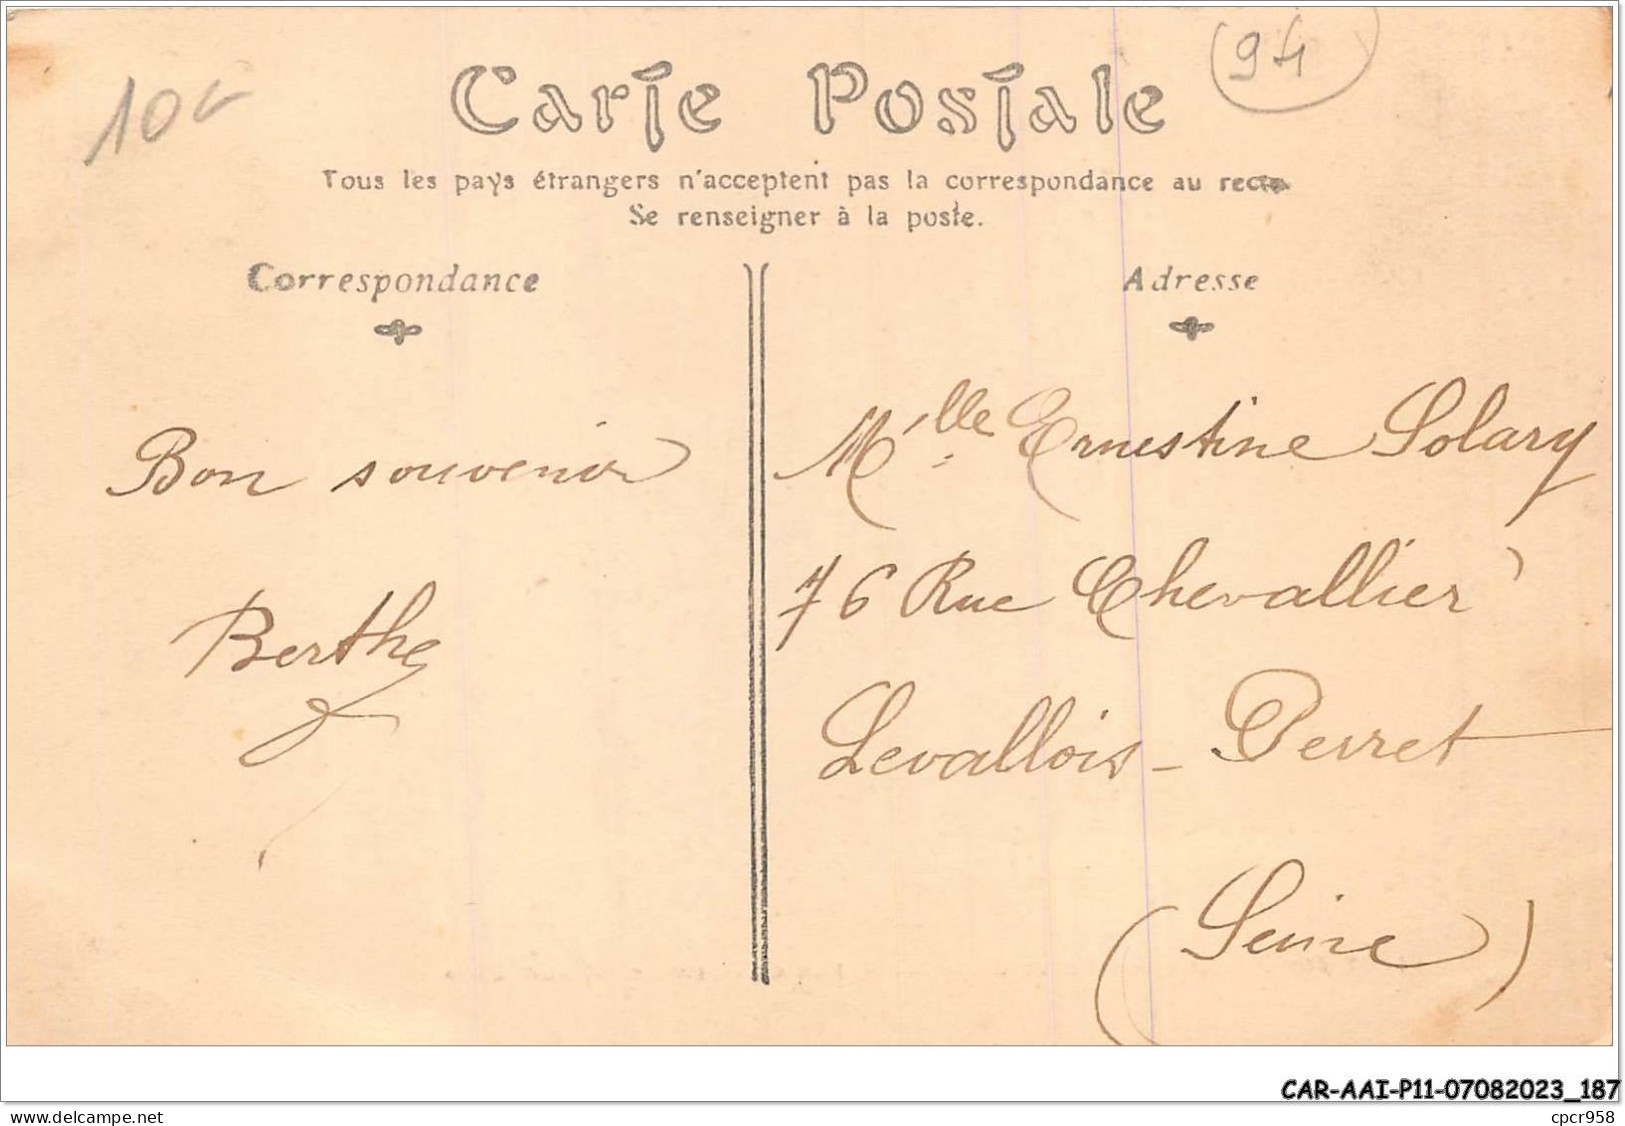 10€
94
Carte Postale
Tous les pays étrangers n'acceptent pas la correspondance au recto
Se renseigner à la poste.
Correspondance
Adresse
Bon souvenir
Berthe
Mlle Ernestine Solary
76 Rue Chevallier
Levallois-Perret
(Seine)
CAR-AAI-P11-07082023_187
www.delcampe.net
cpcr958